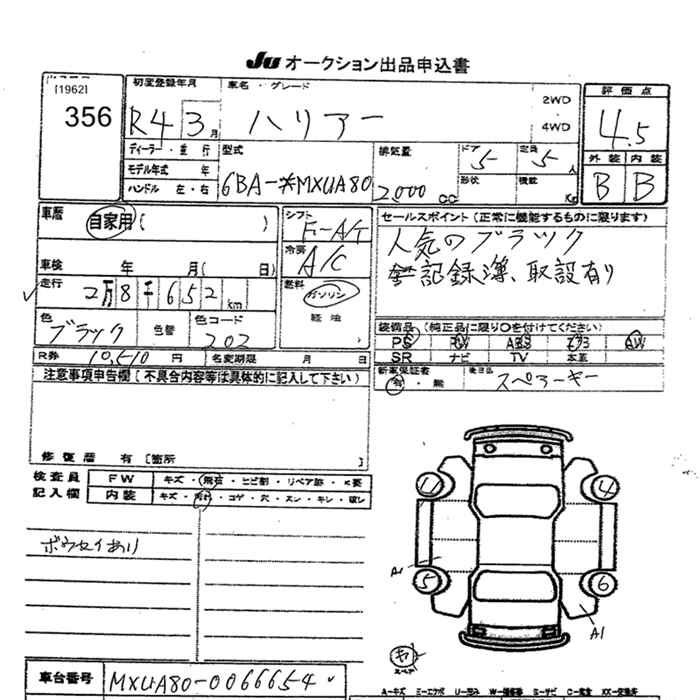 JU オークション出品申込書
[1962]
356
初度登録年月
R4 3月
車名・グレード
ハリアー
2WD
4WD
評価点
4.5
ディーラー・並行
モデル年式 年
ハンドル 左・右
型式
6BA-MXUA80
排気量
2,000 cc
ドア
5
定員
5人
形状
積載
Kg
外装 内装
B B
車歴
自家用 ( )
シフト
F-A/T
セールスポイント(正常に機能するものに限ります)
人気のブラック
記録簿、取説有り
冷房
A/C
車検 年 月( 日)
走行
2万8千652km
燃料
ガソリン
軽油
色
ブラック
色替
色コード
202
装備品(純正品に限り○を付けてください)
PS PW ABS エアB AW
SR ナビ TV 本革
R券 10,510円
名変期限 月 日
新車保証書
有・無
後日品
スペアーキー
注意事項申告欄(不具合内容等は具体的に記入して下さい)
修復歴 有〔箇所
検査員
記入欄
FW キズ・飛石・ヒビ割・リペア跡・X要
内装 キズ・汚れ・コゲ・穴・スレ・キレ・破レ
ボウセイあり
4
5
6
A1
A1
キ
スペア
車台番号
MXUA80-0066654
A-キズ M-エクボ U-凹み W-補修痕 S-サビ C-腐食 XX-交換済